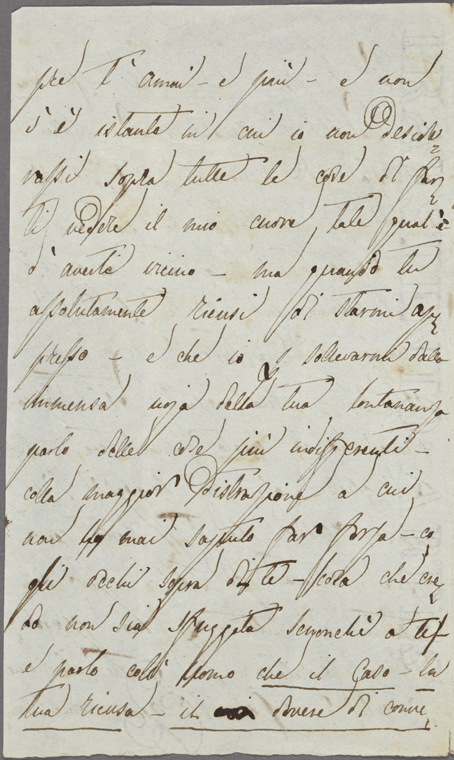 pre t'amai - e più - e non
v'è istante in cui io non deside=
rassi sopra tutte le cose di far=
ti vedere il mio cuore tale qual'è
d'averti vicino - ma quando tu
assolutamente ricusi di starmi ap=
presso - e che io p sollevarmi dalla
immensa noja della tua lontananza
parlo delle cose più indifferenti -
colla maggior distrazione a cui
non ho mai saputo far forza - co
gli occhi sopra di te - cosa che cre=
do non sia sfuggita senonchè a te -
e parlo coll' uomo che il Caso - la
tua ricusa - il dovere di conve